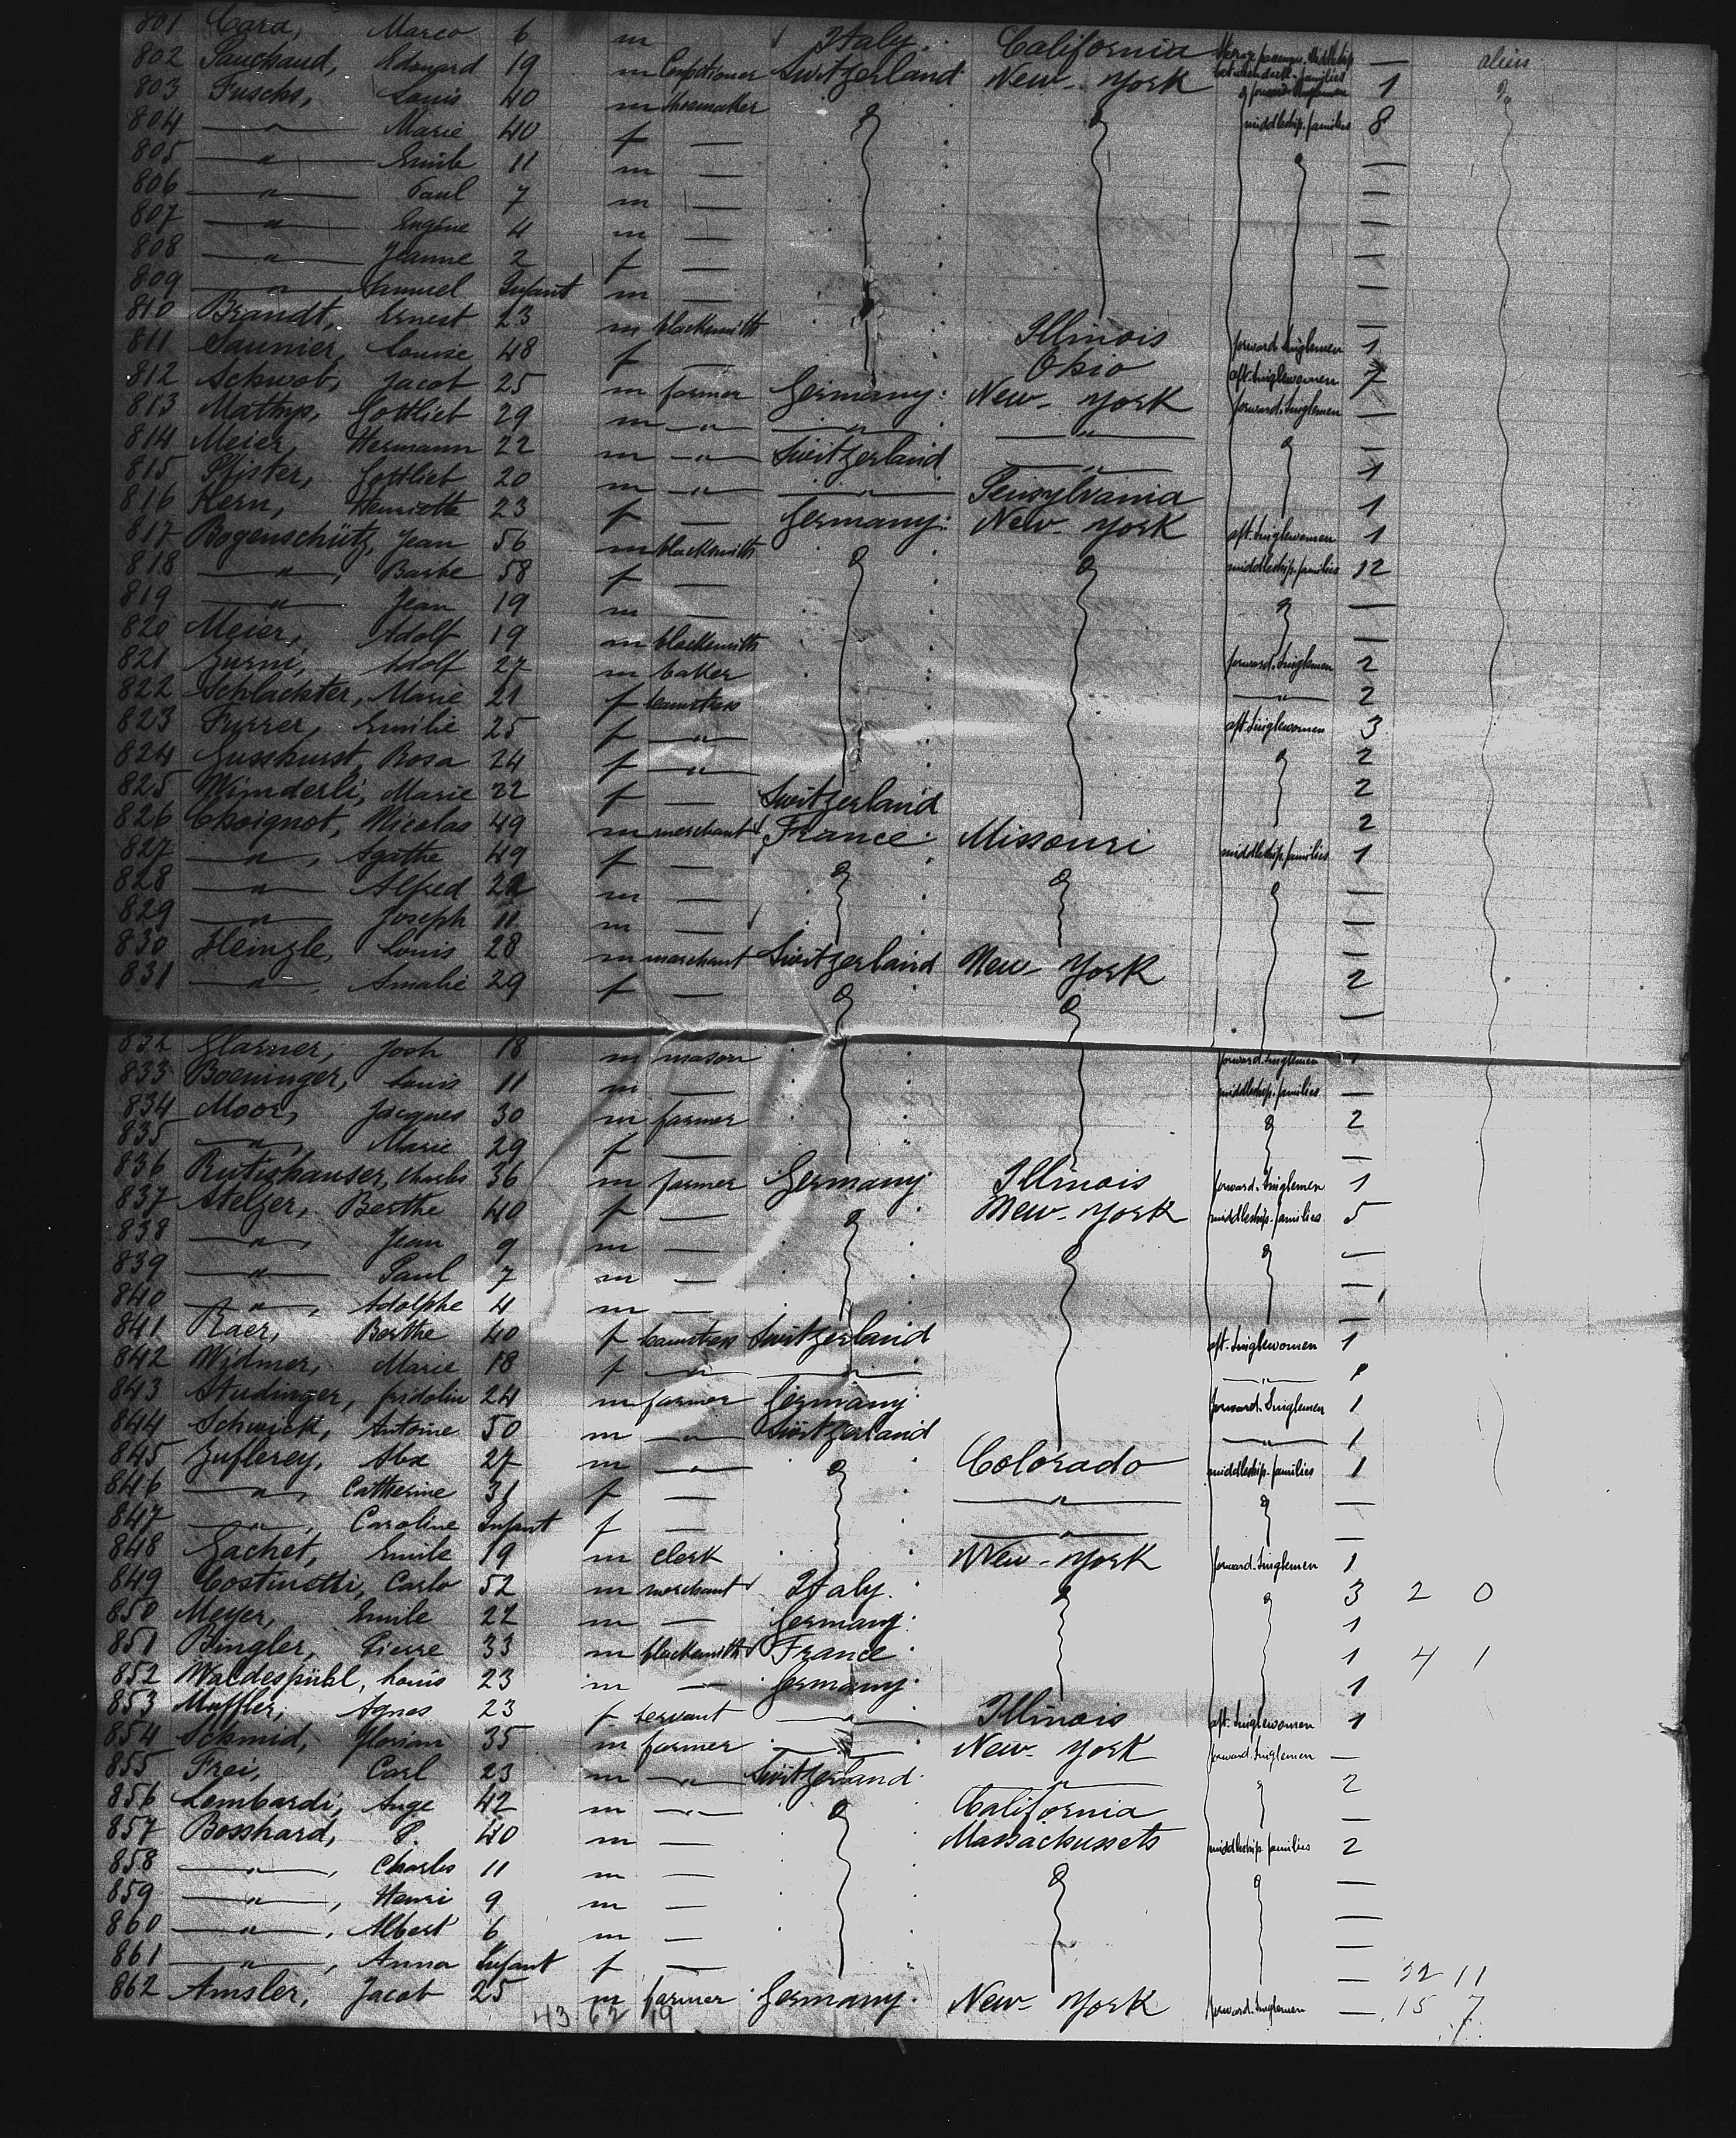 801 Cara, Marco 6 m Italy. California Steerage passengers. Middleship — aliens
802 Sauchaud, Edouard 19 m Confectioner Switzerland New-York forward Singlemen 1 do
803 Fuschs, Louis 40 m Shoemaker middleship. families 8
804 —"— Marie 40 f — —
805 —"— Emile 11 m — —
806 —"— Paul 7 m — —
807 —"— Eugène 4 m — —
808 —"— Jeanne 2 f — —
809 —"— Samuel Infant m — —
810 Brandt, Ernest 23 m blacksmith Illinois forward Singlemen 1
811 Saunier, Louise 48 f — Ohio aft. Singlewomen 7
812 Schwob, Jacob 25 m farmer Germany: New-York forward. Singlemen —
813 Mathys, Gottlieb 29 m —"— —"— —"— —
814 Meier, Hermann 22 m —"— Switzerland —"— 1
815 Pfister, Gottlieb 20 m —"— —"— Pensylvania 1
816 Kern, Henriette 23 f — Germany: New-York aft. Singlewomen 1
817 Bogenschütz, Jean 56 m blacksmith middleship. families 12
818 —"—, Barbe 58 f — —
819 —"— Jean 19 m — —
820 Meier, Adolf 19 m blacksmith forward. Singlemen 2
821 Zurni, Adolf 27 m baker —"— 2
822 Schlachter, Marie 21 f seamstress aft. Singlewomen 3
823 Furrer, Emilie 25 f —"— 2
824 Gusshurst, Rosa 24 f —"— 2
825 Wimderli, Marie 22 f — Switzerland 2
826 Choignot, Nicolas 49 m merchant France. Missouri middleship. families 1
827 —"—, Agathe 49 f — —
828 —"— Alfred m — —
829 —"— Joseph 11 m — —
830 Heinzle, Louis 28 m merchant Switzerland New-York 2
831 —"—, Amalie 29 f — —
832 Glarner, Josh 18 m mason forward. Singlemen 1
833 Boeninger, Louis 11 m — middleship. families —
834 Moor, Jacques 30 m farmer 2
835 —"—, Marie 29 f — —
836 Rutishauser, Charles 36 m farmer Germany Illinois forward. Singlemen 1
837 Stelzer, Berthe 40 f — New-York middleship. families 5
838 —"—, Jean 9 m — —
839 —"— Paul 7 m — —
840 —"—, Adolphe 4 m — —
841 Raer, Berthe 40 f seamstress Switzerland aft. Singlewomen 1
842 Widmer, Marie 18 f —"— —"— —"— 1
843 Studinger, fridolin 24 m farmer Germany forward. Singlemen 1
844 Schwick, Antoine 50 m —"— Switzerland —"— 1
845 Zufferey, Alex 27 m —"— Colorado middleship. families 1
846 —"—, Catherine 31 f — —"— —
847 —"—, Caroline Infant f — —"— —
848 Gachet, Emile 19 m clerk New-York forward. Singlemen 1
849 Costinetti, Carlo 52 m merchant Italy. 3 2 0
850 Meyer, Emile 22 m — Germany: 1
851 Bingler, Pierre 33 m blacksmith France. 1 4 1
852 Waldespühl, Louis 23 m — Germany. 1
853 Muffler, Agnes 23 f servant —"— Illinois aft. Singlewomen 1
854 Schmid, Florian 35 m farmer —"— New-York forward. Singlemen —
855 Frei, Carl 23 m —"— Switzerland. —"— 2
856 Lombardi, Ange 42 m —"— California —
857 Bosshard, P. 40 m — Massachussets middleship. families 2
858 —"—, Charles 11 m — —
859 —"—, Henri 9 m — —
860 —"—, Albert 6 m — —
861 —"—, Anna Infant f — — 32 11
862 Amsler, Jacob 25 m farmer Germany. New-York forward. Singlemen — 15 7
43 62 19